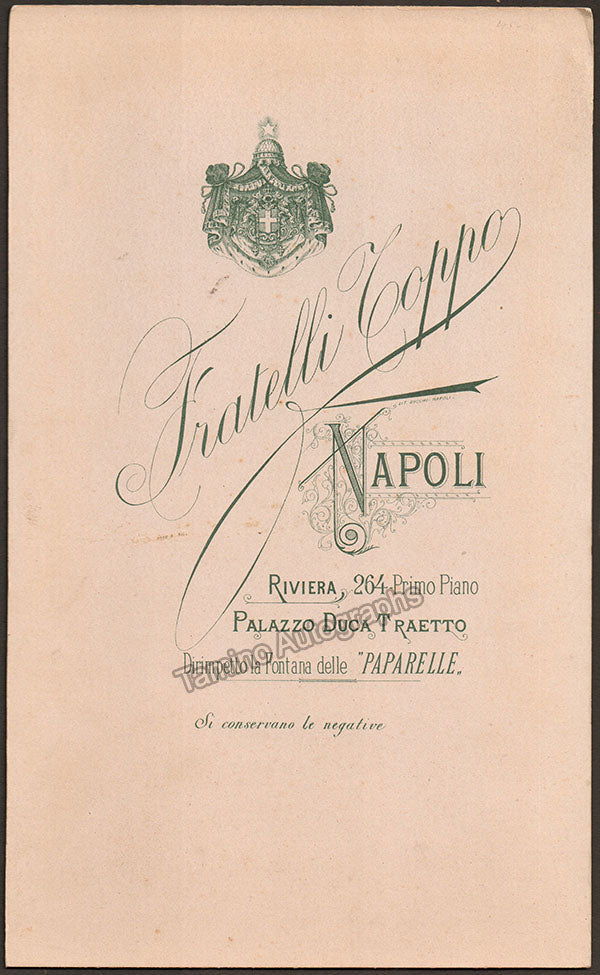 Fratelli Toppo
NAPOLI
RIVIERA, 264 Primo Piano
PALAZZO DUCA TRAETTO
Dirimpetto la Fontana delle "PAPARELLE„
Tamino Autographs
Si conservano le negative